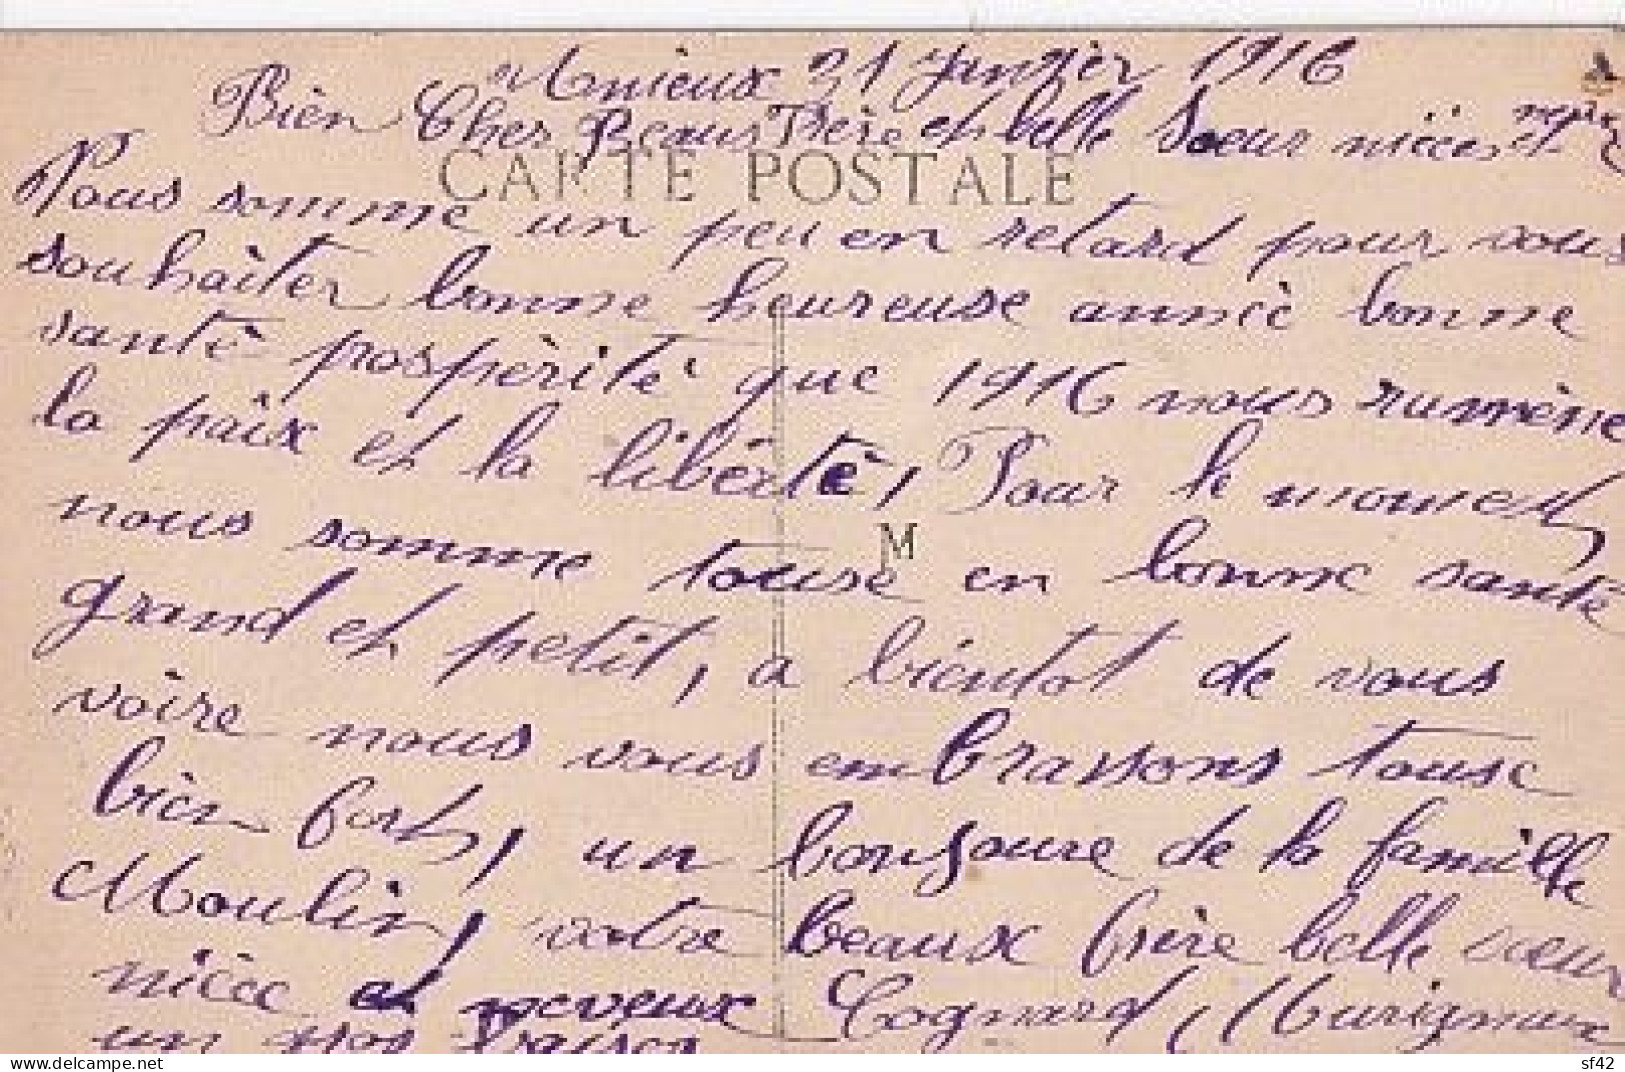 Unieux 21 Janvièr 1916
Bièn Cher Beaus Frère et belle Soeur nièces et neveux
CARTE POSTALE
Nous somme un peu en retard pour vous
souhaiter bonne heureuse année bonne
santé prospèrité que 1916 nous ramène
la paix et la libérté, Pour le moment
M
nous somme touse en bonne santé
grand et petit, a bientot de vous
voire nous vous embrassons touse
bien forts, un bonjoure de la famille
Moulin, votre beaux frère belle soeur
nièce et neveux Cognard,
un gros baiser
delcampe.net
sf42